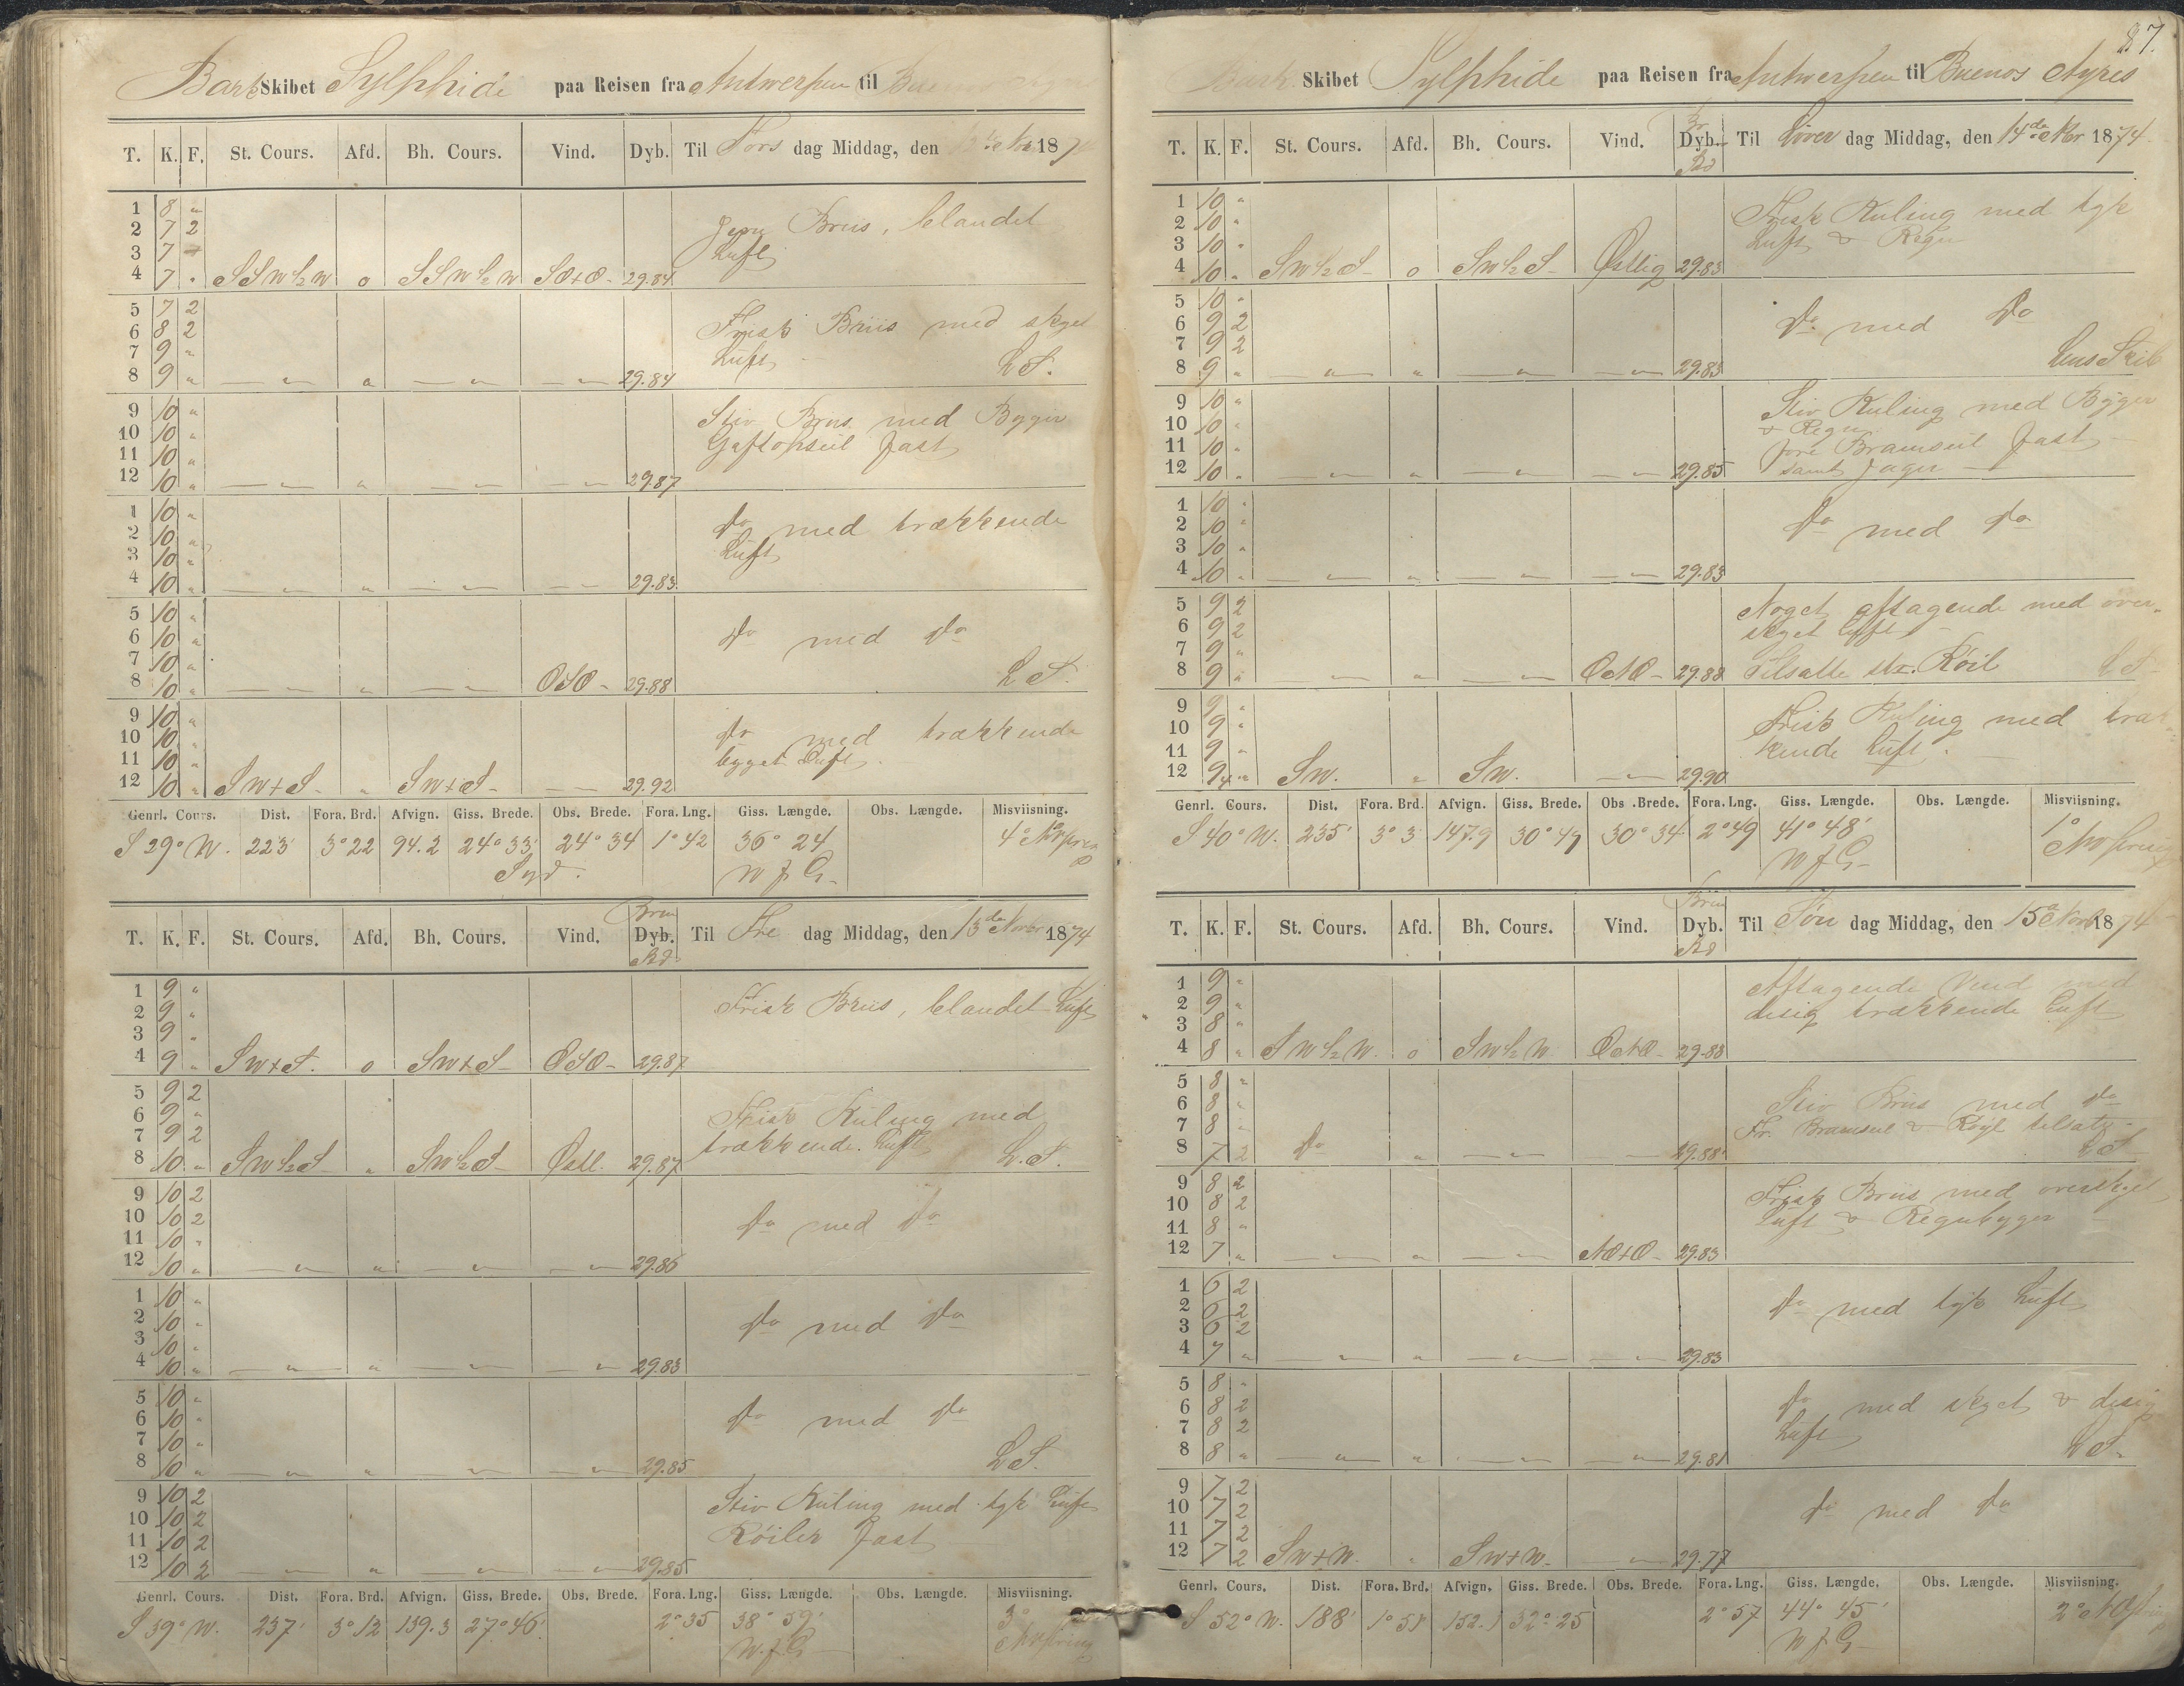 Bark Skibet Sylphide paa Reisen fra Antwerpen til
T. K. F. St. Cours. Afd. Bh. Cours. Vind. Dyb. Til Tors dag Middag, den 12 Nov 1874
1 8 "
2 7 2
3 7
4 7 " SSW½W 0 SSW½W SO+O 29.84
Jevn Briis, blandet
Luft
5 7 2
6 8 2
7 9 "
8 9 " — " — " — " — — " — 29.84
Frisk Briis med skyet
Luft L.S.
9 10 "
10 10 "
11 10 "
12 10 " — " — " — " — — " — 29.87
Stiv Briis med Byger
Gaftopseil fast
1 10 "
2 10 "
3 10 "
4 10 " — " — " — " — — " — 29.83
Do med trækkende
Luft
5 10 "
6 10 "
7 10 "
8 10 " — " — " — " — OSO 29.88
Do med Do
L.S.
9 10 "
10 10 "
11 10 "
12 10 " SW+S " SW+S — " — 29.92
Do med trækkende
bygget Luft
Genrl. Cours. Dist. Fora. Brd. Afvign. Giss. Brede. Obs. Brede. Fora. Lng. Giss. Længde. Obs. Længde. Misviisning.
S 29° W. 223' 3°22 94.2 24°33' 24°34 1°42 36°24 4°
Syd. W f G
T. K. F. St. Cours. Afd. Bh. Cours. Vind. Dyb. Til Fre dag Middag, den 13de Novbr 1874
1 9 "
2 9 "
3 9 "
4 9 " SW+S. 0 SW+S OSO 29.87
Frisk Briis, blandet Luft
5 9 2
6 9 "
7 9 2
8 10 " SW½S " SW½S Østl. 29.87
Frisk Kuling med
trækkende Luft L.S.
9 10 2
10 10 2
11 10 "
12 10 " — " — " — " — — " — 29.86
Do med Do
1 10 "
2 10 "
3 10 "
4 10 " — " — " — " — — " — 29.83
Do med Do
5 10 "
6 10 "
7 10 "
8 10 " — " — " — " — — " — 29.85
Do med Do
L.S.
9 10 2
10 10 2
11 10 2
12 10 2 — " — " — " — — " — 29.85
Stiv Kuling med tyk Luft
Röiler fast
Genrl. Cours. Dist. Fora. Brd. Afvign. Giss. Brede. Obs. Brede. Fora. Lng. Giss. Længde. Obs. Længde. Misviisning.
S 39° W. 237' 3°12 139.3 27°46' 2°35 38°59' 3°
W. f. G
87.
Bark Skibet Sylphide paa Reisen fra Antwerpen til Buenos Ayres
T. K. F. St. Cours. Afd. Bh. Cours. Vind. Dyb. Til Löver dag Middag, den 14de Nbr 1874
1 10 "
2 10 "
3 10 "
4 10 " SW½S 0 SW½S Østlig 29.83
Frisk Kuling med tyk
Luft & Regn
5 10 "
6 9 2
7 9 2
8 9 " — " — " — " — — " — 29.83
Do med Do
Lens Skib
9 10 "
10 10 "
11 10 "
12 10 " — " — " — " — — " — 29.85
Stiv Kuling med Byger
& Regn
fore Bramseil fast
samt Jager
1 10 "
2 10 "
3 10 "
4 10 " — " — " — " — — " — 29.83
Do med Do
5 9 2
6 9 2
7 9 "
8 9 " — " — " — " — ONO 29.88
Noget aftagende med over-
skyet Luft
Tilsatte str. Röil L S
9 9 "
10 9 "
11 9 "
12 9 " SW. " SW. — " — 29.90
Frisk Kuling med træk-
kende Luft
Genrl. Cours. Dist. Fora. Brd. Afvign. Giss. Brede. Obs. Brede. Fora. Lng. Giss. Længde. Obs. Længde. Misviisning.
S 40° W. 235' 3°3 147.9 30°49 30°34 2°49 41°48' 1°
W f G
T. K. F. St. Cours. Afd. Bh. Cours. Vind. Dyb. Til Søn dag Middag, den 15 Novb 1874
1 9 "
2 9 "
3 8 "
4 8 " SW½W. 0 SW½W ONO 29.88
Aftagende Vind med
disig trækkende Luft
5 8 "
6 8 "
7 8 "
8 7 2 Do " — " — — 29.88
Stiv Briis med Do
Fr. Bramseil & Royl tilsatz
L S
9 8 2
10 8 2
11 8 "
12 7 " — " — " — " — NO+O 29.83
Frisk Briis med overskyet
Luft & Regnbyger
1 6 2
2 6 2
3 6 2
4 7 " — " — " — " — — " — 29.83
Do med tyk Luft
5 8 "
6 8 2
7 8 2
8 8 " — " — " — " — — " — 29.81
Do med skyet & disig
Luft L S
9 7 2
10 7 2
11 7 2
12 7 2 SW+W. " SW+W. — " — 29.77
Do med Do
Genrl. Cours. Dist. Fora. Brd. Afvign. Giss. Brede. Obs. Brede. Fora. Lng. Giss. Længde. Obs. Længde. Misviisning.
S 52° W. 188' 1°51' 152.1 32°25 2°57 44°45' 2°
W f G